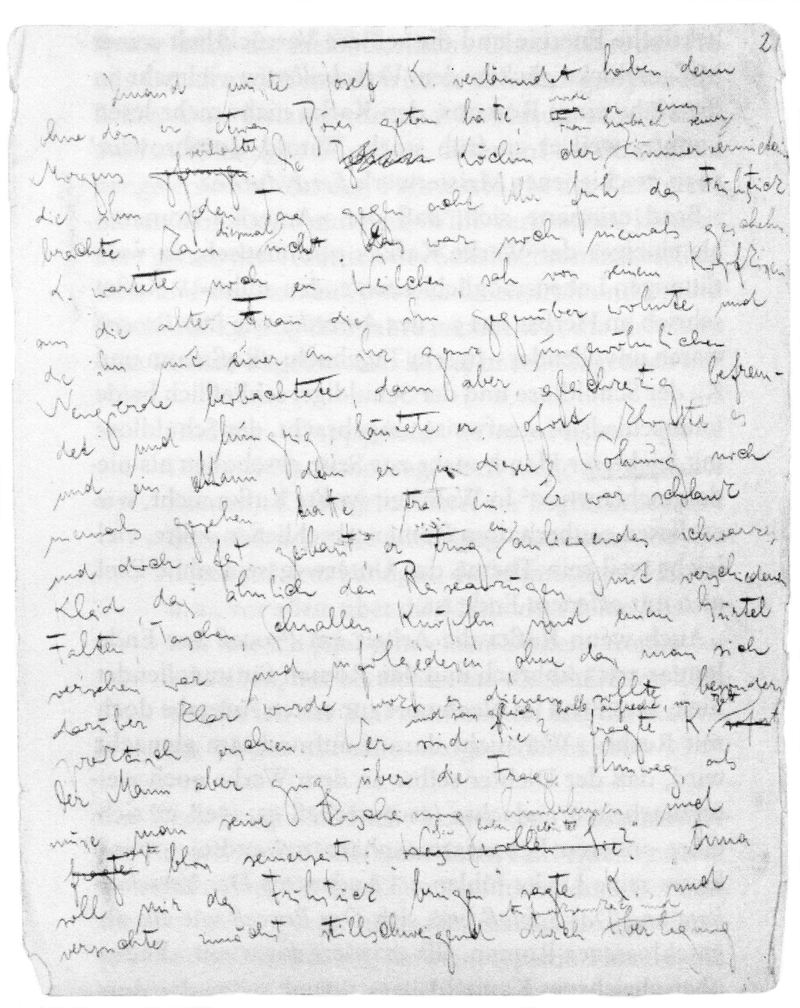 2
Jemand musste Josef K. verläumdet haben, denn
ohne dass er etwas Böses getan hätte, war er eines
Morgens verhaftet. Die Köchin der Zimmervermieterin,
die ihm jeden Tag gegen acht Uhr früh das Frühstück
brachte kam diesmal nicht. Das war noch niemals geschehn.
K. wartete noch ein Weilchen, sah von seinem Kopfkissen
aus die alte Frau die ihm gegenüber wohnte und
die ihn mit einer an ihr ganz ungewöhnlichen
Neugierde beobachtete, dann aber, gleichzeitig befrem-
det und hungrig, läutete er. Sofort klopfte es
und ein Mann, den er in dieser Wohnung noch
niemals gesehen hatte trat ein. Er war schlank
und doch fest gebaut, er trug ein anliegendes schwarzes
Kleid, das ähnlich den Reiseanzügen mit verschiedenen
Falten, Taschen, Schnallen, Knöpfen und einem Gürtel
versehen war und infolgedessen, ohne dass man sich
darüber klar wurde, wozu es dienen sollte, besonders
praktisch erschien. "Wer sind Sie?" fragte K. und sass gleich halb aufrecht im Bett
Der Mann aber ging über die Frage hinweg, als
müsse man seine Erscheinung hinnehmen und
sagte bloss seinerseits: "Sie haben geläutet?" "Anna
soll mir das Frühstück bringen" sagte K. und
versuchte zunächst stillschweigend durch Aufmerksamkeit und Überlegung